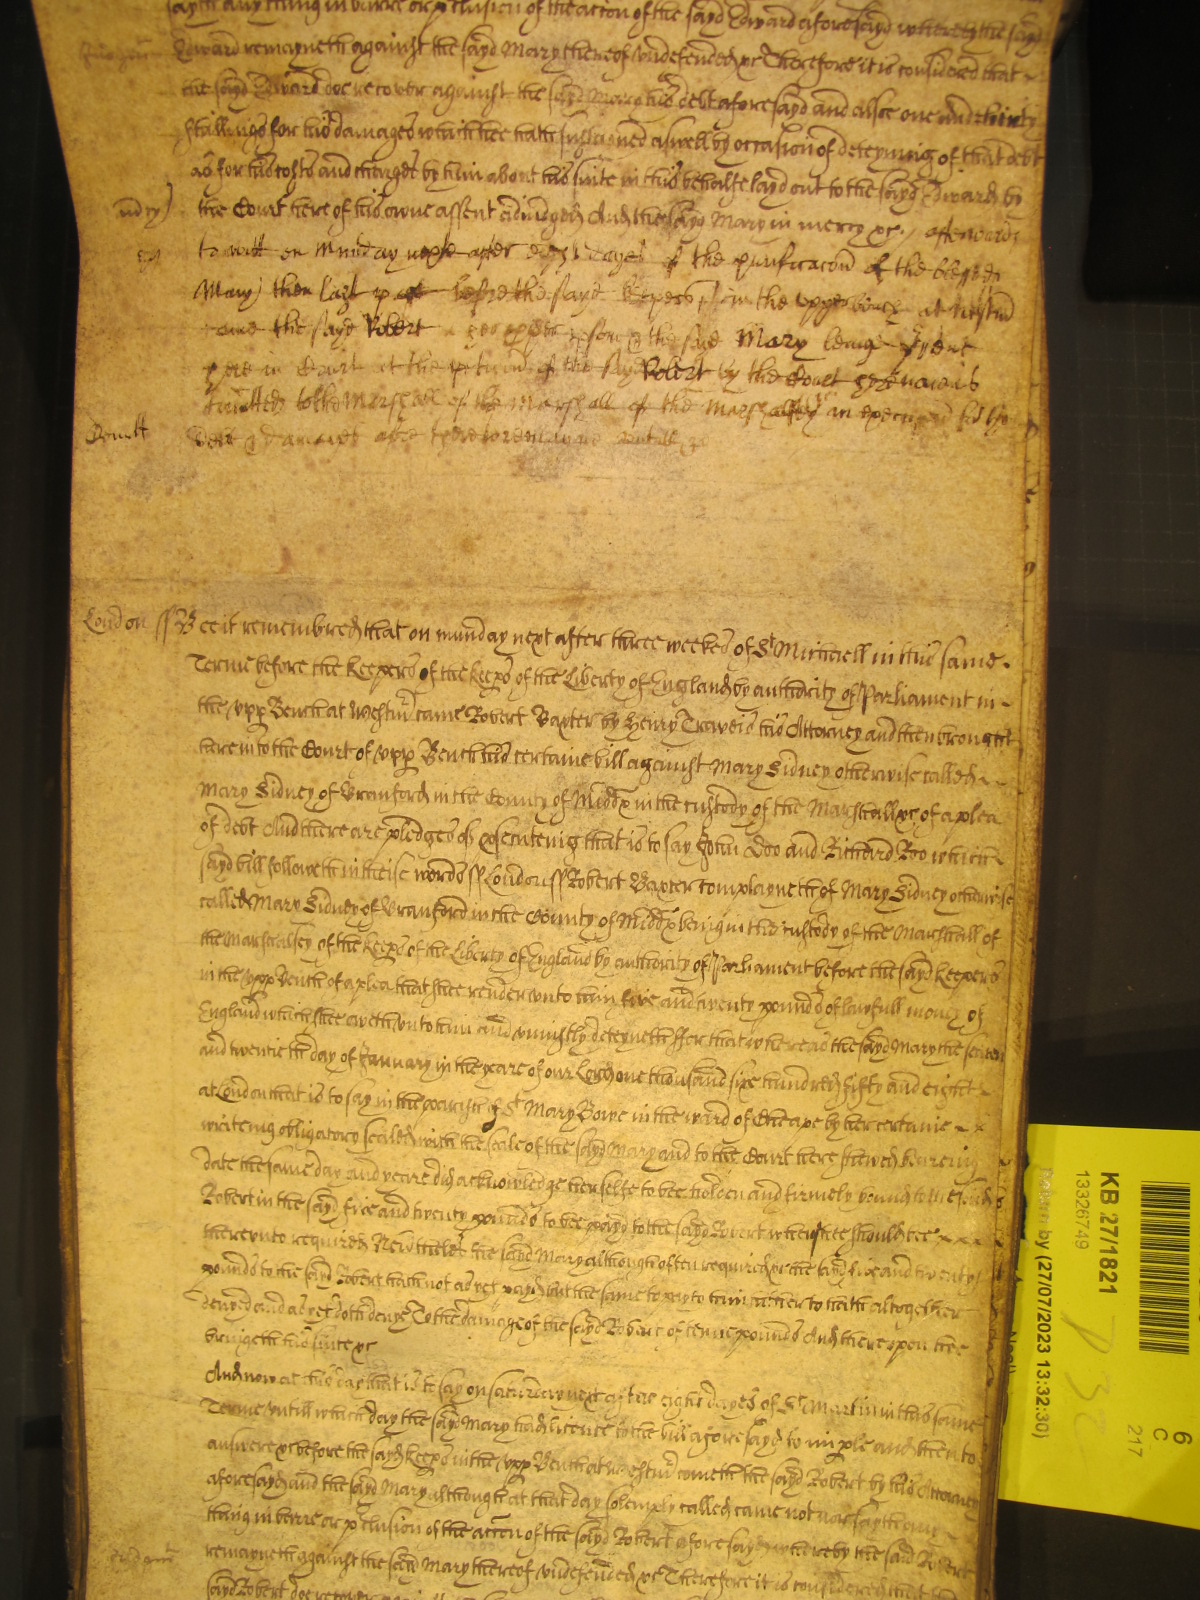 sayth any thing in barre or preclusion of the action of the sayd Edward aforesayd whereby the sayd
Edward remayneth against the sayd Mary thereof undefended &c Therefore it is considered that
the sayd Edward doe recover against the sayd Mary his debt aforesayd and alsoe one and thirty
shillings for his damages which hee hath susteyned aswell by occasion of deteyning of that debt
as for his costs and charges by him about his suite in this behalfe layd out to the sayd Edward by
the Court here of his owne assent adiudged And the sayd Mary in mercy &c. afterwards
to witt on Munday next after eight dayes of the purificacon of the blessed
Mary then last past before the sayd Keepers in the upper bench at Westmr
came the sayd Robert in his proper person & the sayd Mary being
here in Court at the peticon of the sayd Robert by the Court here was
Comitted to the Marshall of the Marshalsey in execucon for the
debt & damages aforesayd there to remayne untill &c
London ss Bee it remembred that on munday next after three weekes of St Michaell in this same
Terme before the Keepers of the Keeps of the Liberty of England by authority of Parliament in
the upp Bench at Westmr came Robert Baxter by Henry Travers his Attorney and then brought
here into the Court of upp Bench his certaine bill against Mary Sidney otherwise called
Mary Sidney of Branford in the County of Middx in the custody of the Marshall &c of a plea
of debt And there are pledges of prosecuteing that is to say John Doo and Richard Roo which
sayd bill followeth in theise words ss London ss Robert Baxter complayneth of Mary Sidney otherwise
called Mary Sidney of Branford in the County of Middx being in the custody of the Marshall of
the Marshalsey of the Keeps of the Liberty of England by authority of Parliament before the sayd Keepers
in the upp Bench of a plea that shee render unto him five and twenty pounds of lawfull money of
England which shee oweth unto him and uniustly deteyneth ffor that whereas the sayd Mary the seaven
and twentieth day of January in the yeare of our Lord one thousand six hundred fifty and eight
at London that is to say in the parish of St Mary Bowe in the ward of Cheape by her certaine
writeing obligatory sealed with the seale of the sayd Mary and to the Court here shewed beareing
date the same day and yeare did acknowledge herselfe to bee holden and firmely bound to the sayd
Robert in the sayd five and twenty pounds to bee payd to the sayd Robert when shee should bee
thereunto required Neverthelesse the sayd Mary although often required &c the sayd five and twenty
pounds to the sayd Robert hath not as yet payd but the same to pay to him hither to hath altogether
denyed and as yet doth denye To the damage of the sayd Robert of tenne pounds And thereupon hee
bringeth his suite &c
And now at this day that is to say on saturday next after eight dayes of St Martin in this same
Terme untill which day the sayd Mary had licence to the bill aforesayd to imple and then to
answere &c before the sayd Keeps in the upp Bench at Westmr cometh the sayd Robert by his Attorney
aforesayd and the sayd Mary although at that day solemply called came not nor sayth any
thing in barre or preclusion of the action of the sayd Robert aforesayd whereby the said Robert
remayneth against the said Mary thereof undefended &c Therefore it is considered that the
sayd Robert doe recover
KB 27/1821
13326749
by (27/07/2023 13:32:30)
6
C
217